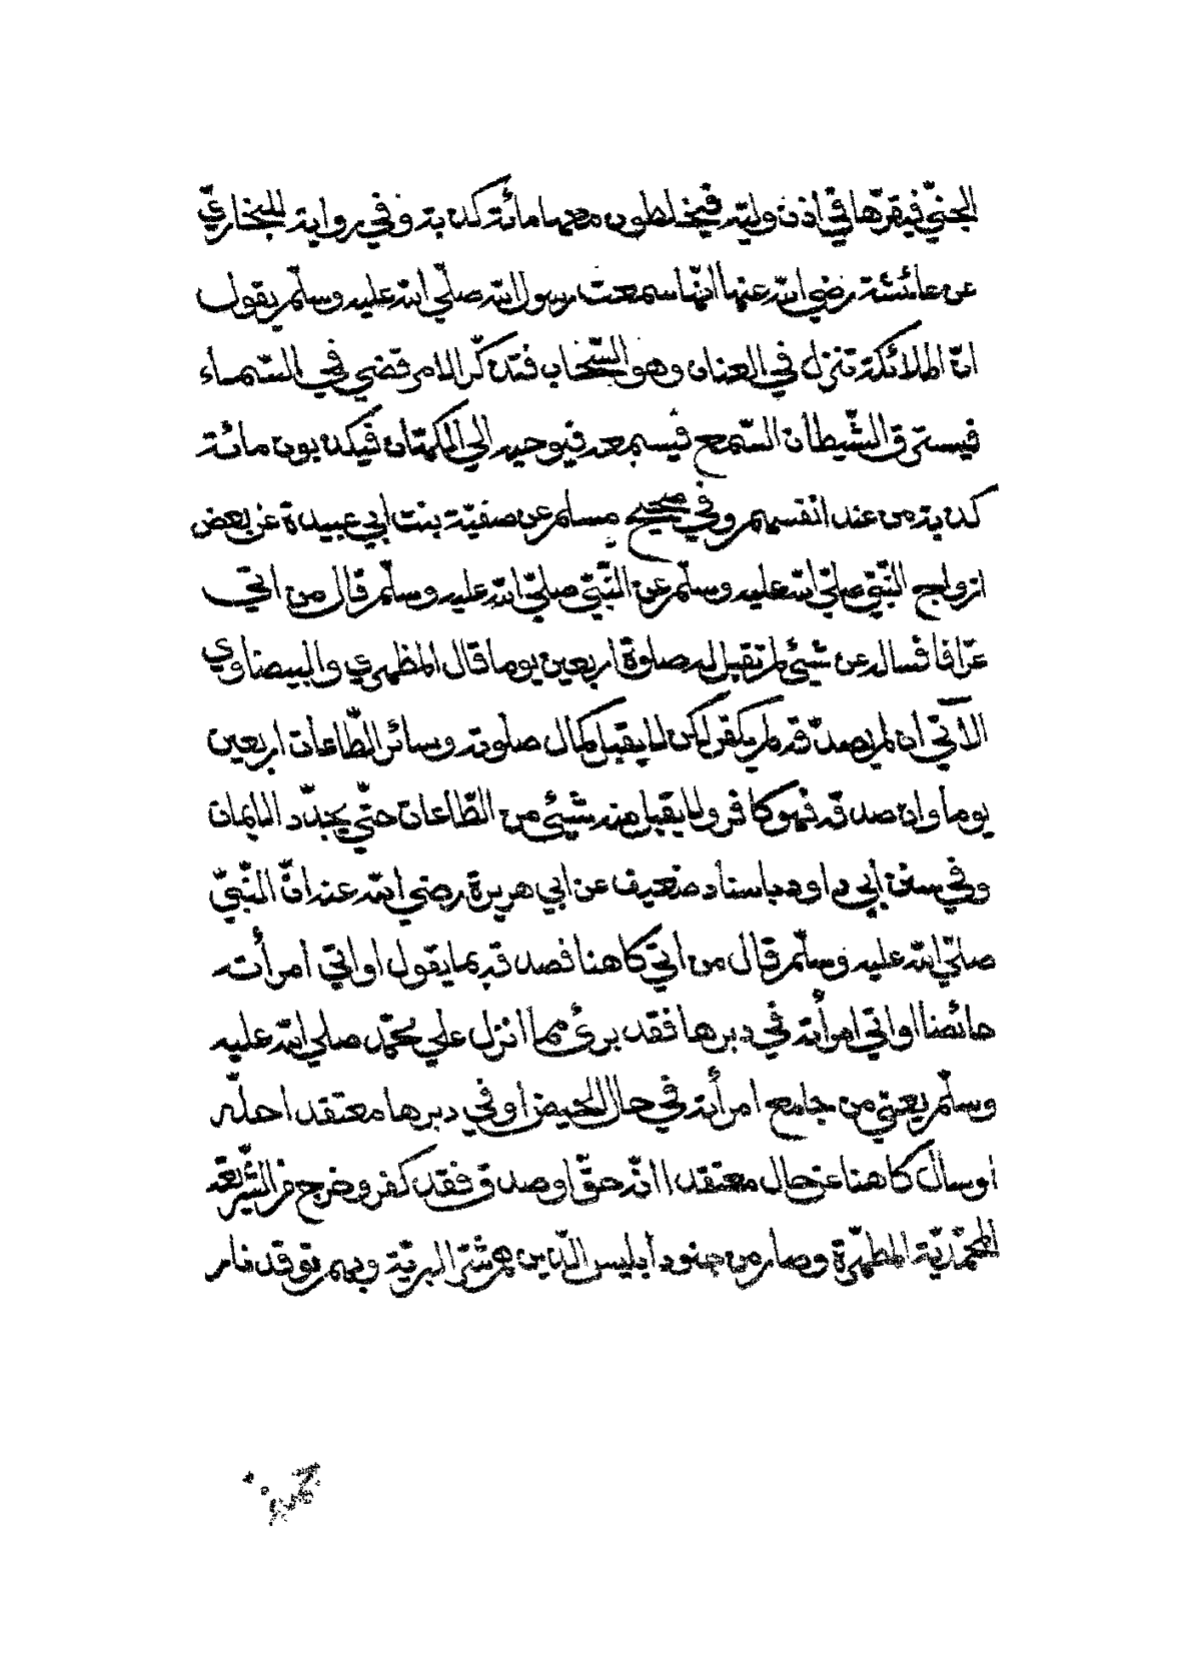 الجنّي فيقرّها في اذن وليّه فيخلطون معها مائة كذبة وفي رواية للبخاريّ
عن عائشة رضي الله عنها انّها سمعت رسول الله صلّي الله عليه وسلّم يقول
انّ الملائكة تنزل في العنان وهو السّحاب فتذكّر الامر قضي في السّماء
فيسترق الشّيطان السّمع فيسمعه فيوحيه الي الكهّان فيكذبون مائة
كذبة من عند انفسهم وفي صحيح مسلم عن صفيّة بنت ابي عبيدة عن بعض
ازواج النّبيّ صلّي الله عليه وسلّم عن النّبيّ صلّي الله عليه وسلّم قال من اتي
عرّافا فساله عن شيئ لم تقبل له صلوة اربعين يوما قال المظهري والبيضاوي
الآتي ان لم يصدّقه لم يكفر لكن لا يقبل كمال صلوته وسائر الطّاعات اربعين
يوما وان صدقه فهو كافر ولا يقبل منه شيئ من الطّاعات حتّي يجدّد الايمان
وفي سنن ابي داود باسناد ضعيف عن ابي هريرة رضي الله عنه انّ النّبيّ
صلّي الله عليه وسلّم قال من اتي كاهنا فصدقه بما يقول او اتي امرأته
حائضا او اتي امرأته في دبرها فقد برئ مما انزل علي محمّد صلي الله عليه
وسلّم يعني من جامع امرأته في حال الحيض او في دبرها معتقد احلّه
او سال كاهنا عن حال معتقدا انّه حقّ او صدق فقد كفر وخرج من الشّريعة
المحمّديّة المطهّرة وصار من جنود ابليس الّذين هم شرّ البريّة وبهم توقد نار